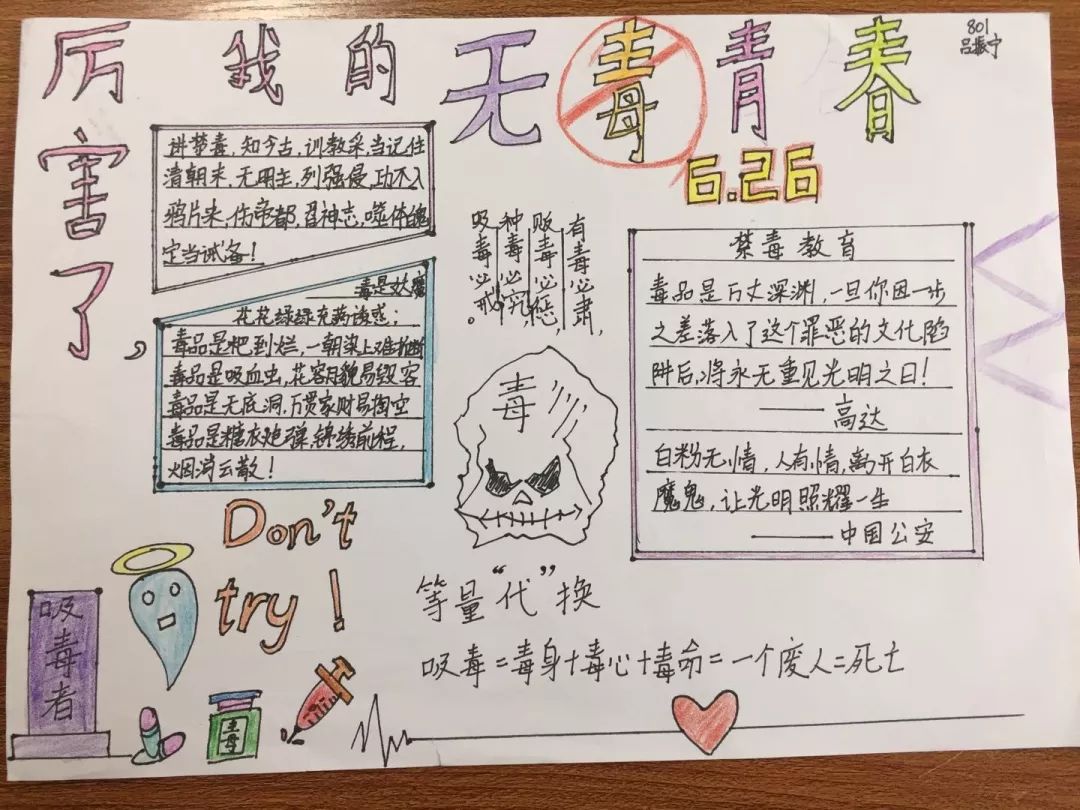 厉害了，我的无毒青春
801
吕振宁
6.26
讲禁毒，知今古，训教采，当记住
清朝末，无明主，列强侵，功不入
鸦片来，伤帝都，召神志，噬体魄
定当诫备！
毒是妖魔
花花绿绿充满诱惑；
毒品是粑到烂，一朝染上难推断
毒品是吸血虫，花容月貌易毁容
毒品是无底洞，万贯家财易掏空
毒品是糖衣炮弹，锦绣前程，
烟消云散！
有毒必肃，
贩毒必惩，
种毒必究，
吸毒必戒。
毒
禁毒教育
毒品是万丈深渊，一旦你因一步
之差落入了这个罪恶的文化陷
阱后，将永无重见光明之日！
——高达
白粉无情，人有情，离开白衣
魔鬼，让光明照耀一生
——中国公安
Don't
try!
等量“代”换
吸毒=毒身+毒心+毒命=一个废人=死亡
吸毒者
毒